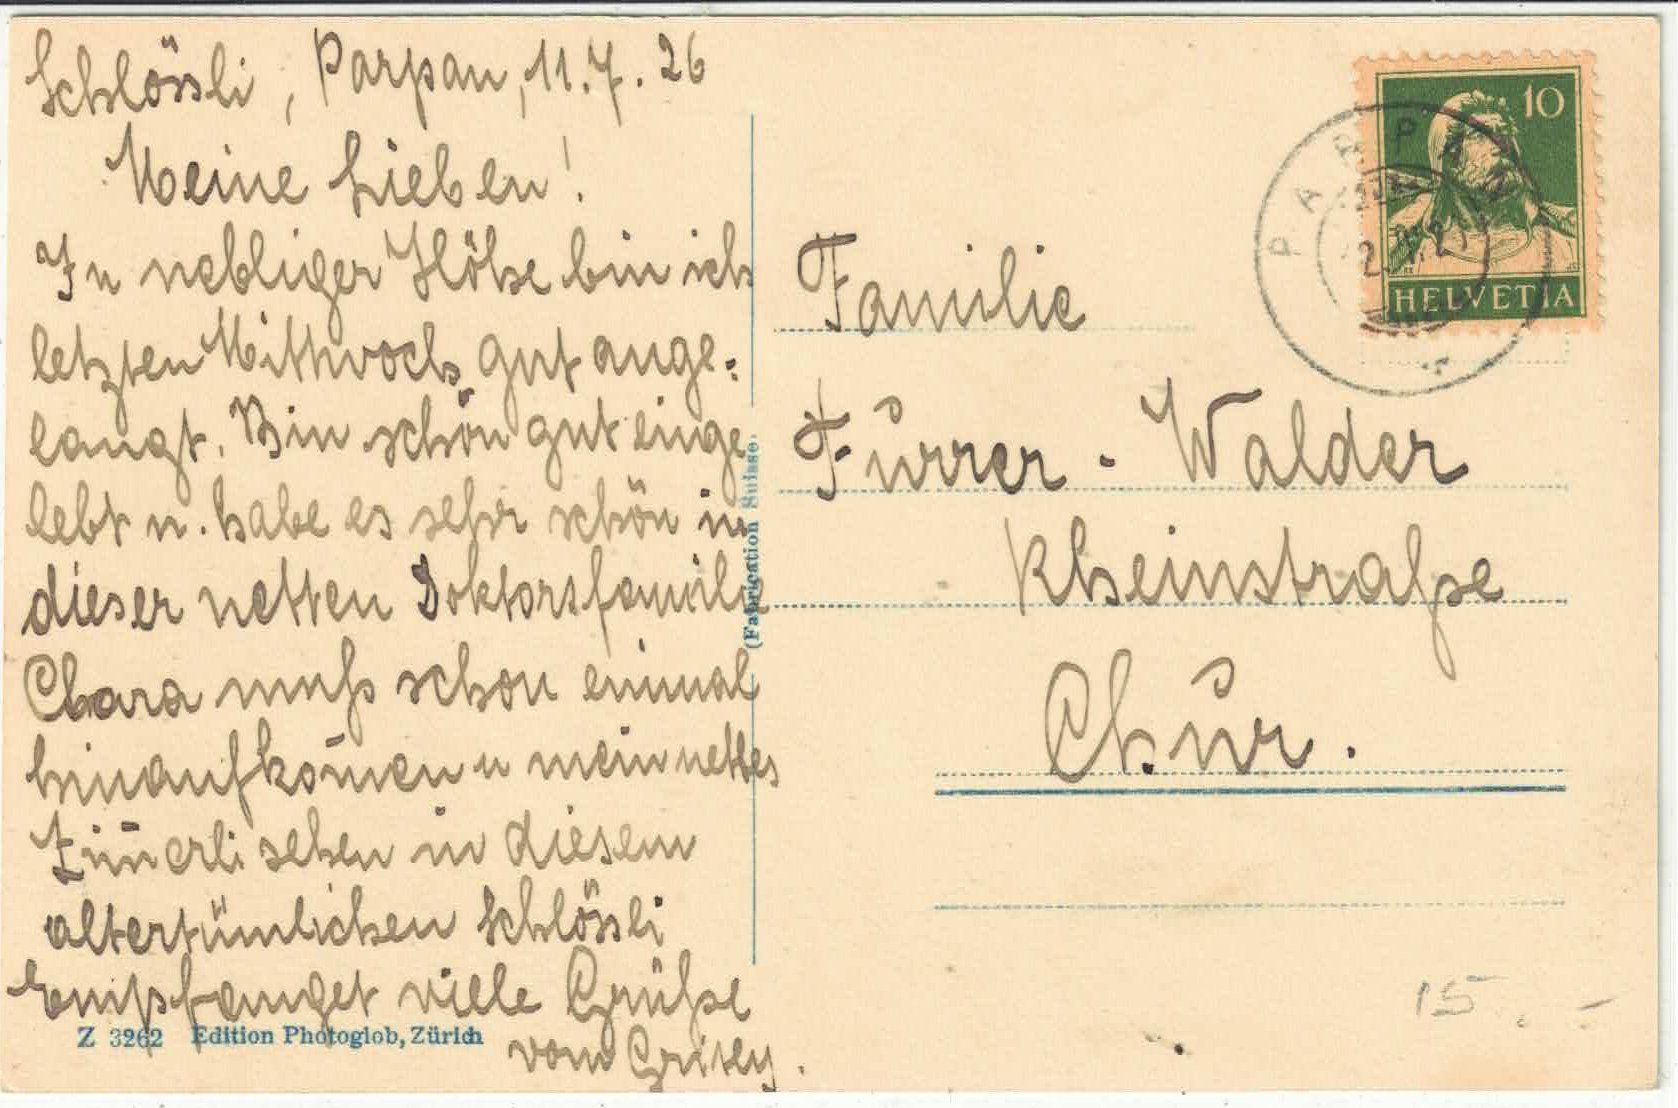 Schlössli, Parpan, 11.7.26
Meine Lieben!
In nebliger Höhe bin ich
letzten Mittwoch gut ange-
langt. Bin schon gut einge
lebt u. habe es sehr schön in
dieser netten Doktorsfamilie
Clara muß schon einmal
hinaufkom̄en u mein nettes
Zim̄erli sehen in diesem
altertümlichen Schlössli
Empfanget viele Grüße
vom
Z 3262 Edition Photoglob, Zürich
(Fabrication Suisse)
10
HELVETIA
PARPAN
Familie
Furrer-Walder
Rheinstraße
Chur.
15.-